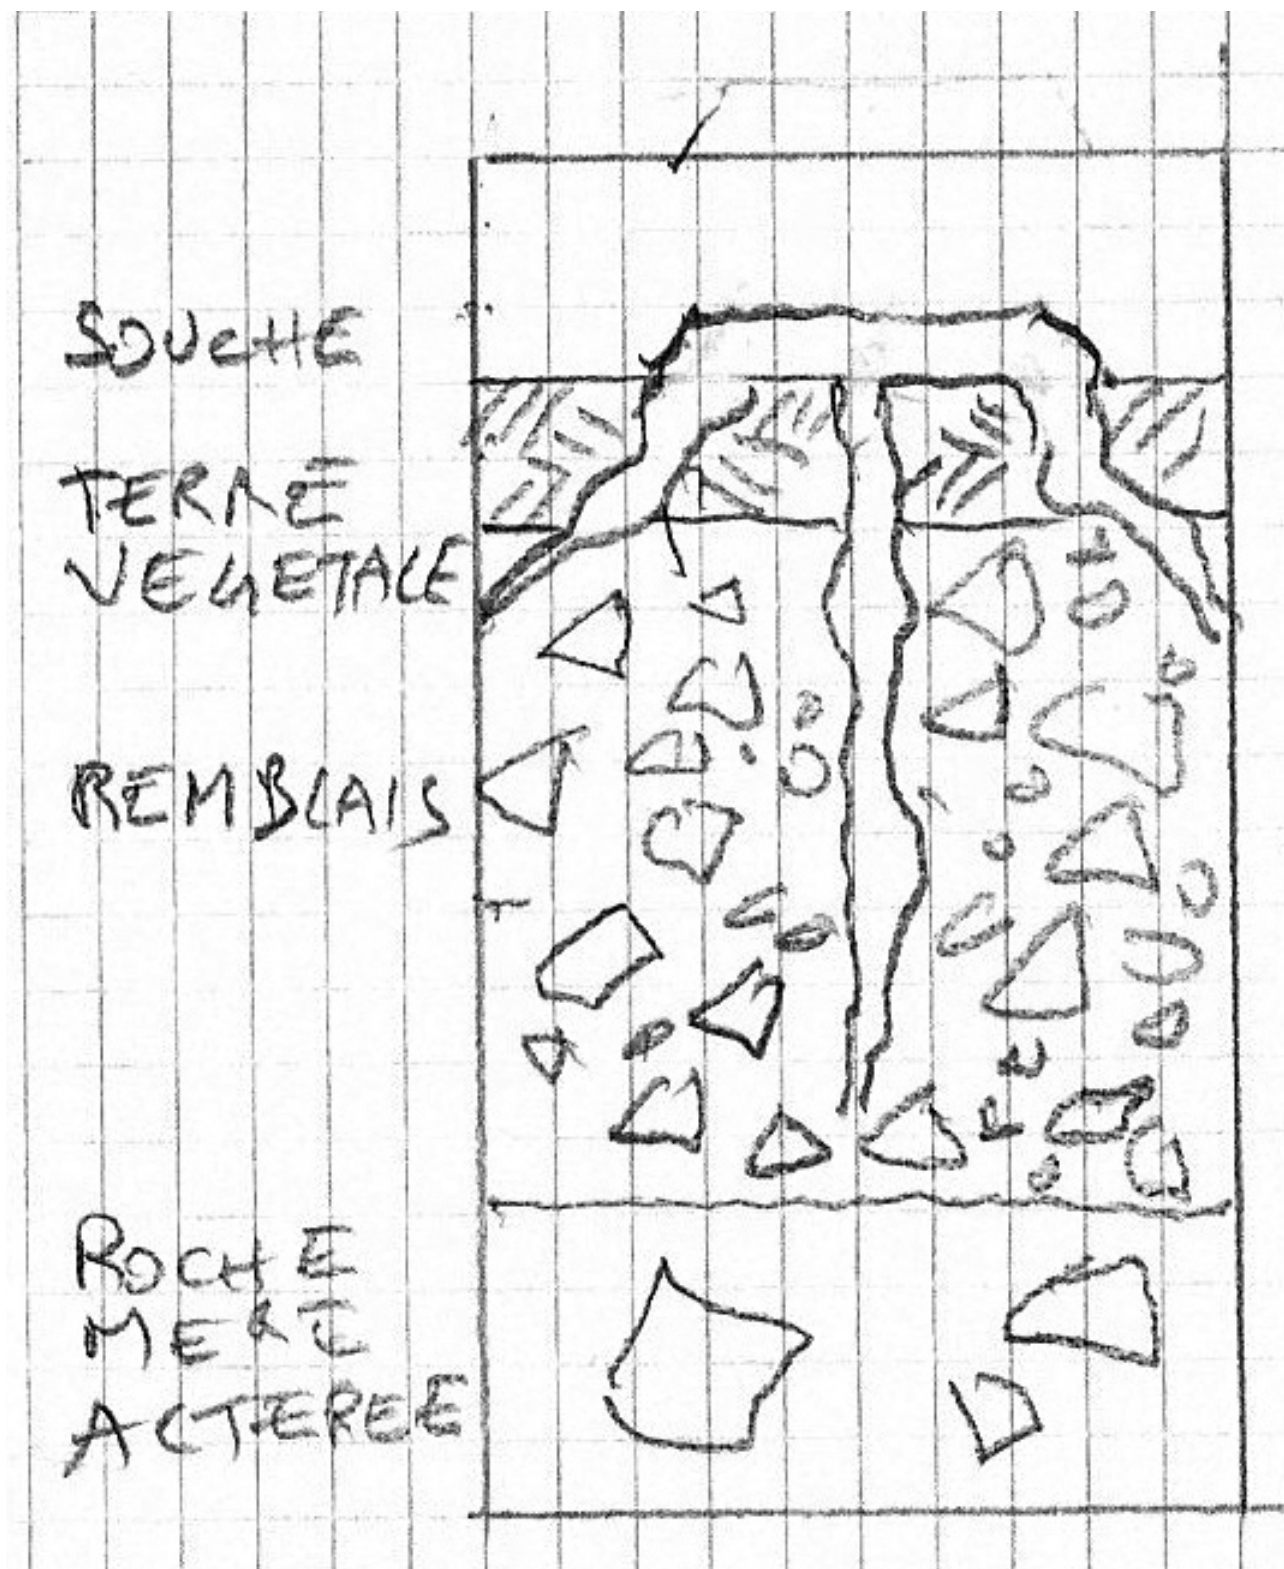 SOUCHE
TERRE
VEGETALE
REMBLAIS
ROCHE
MERE
ALTEREE